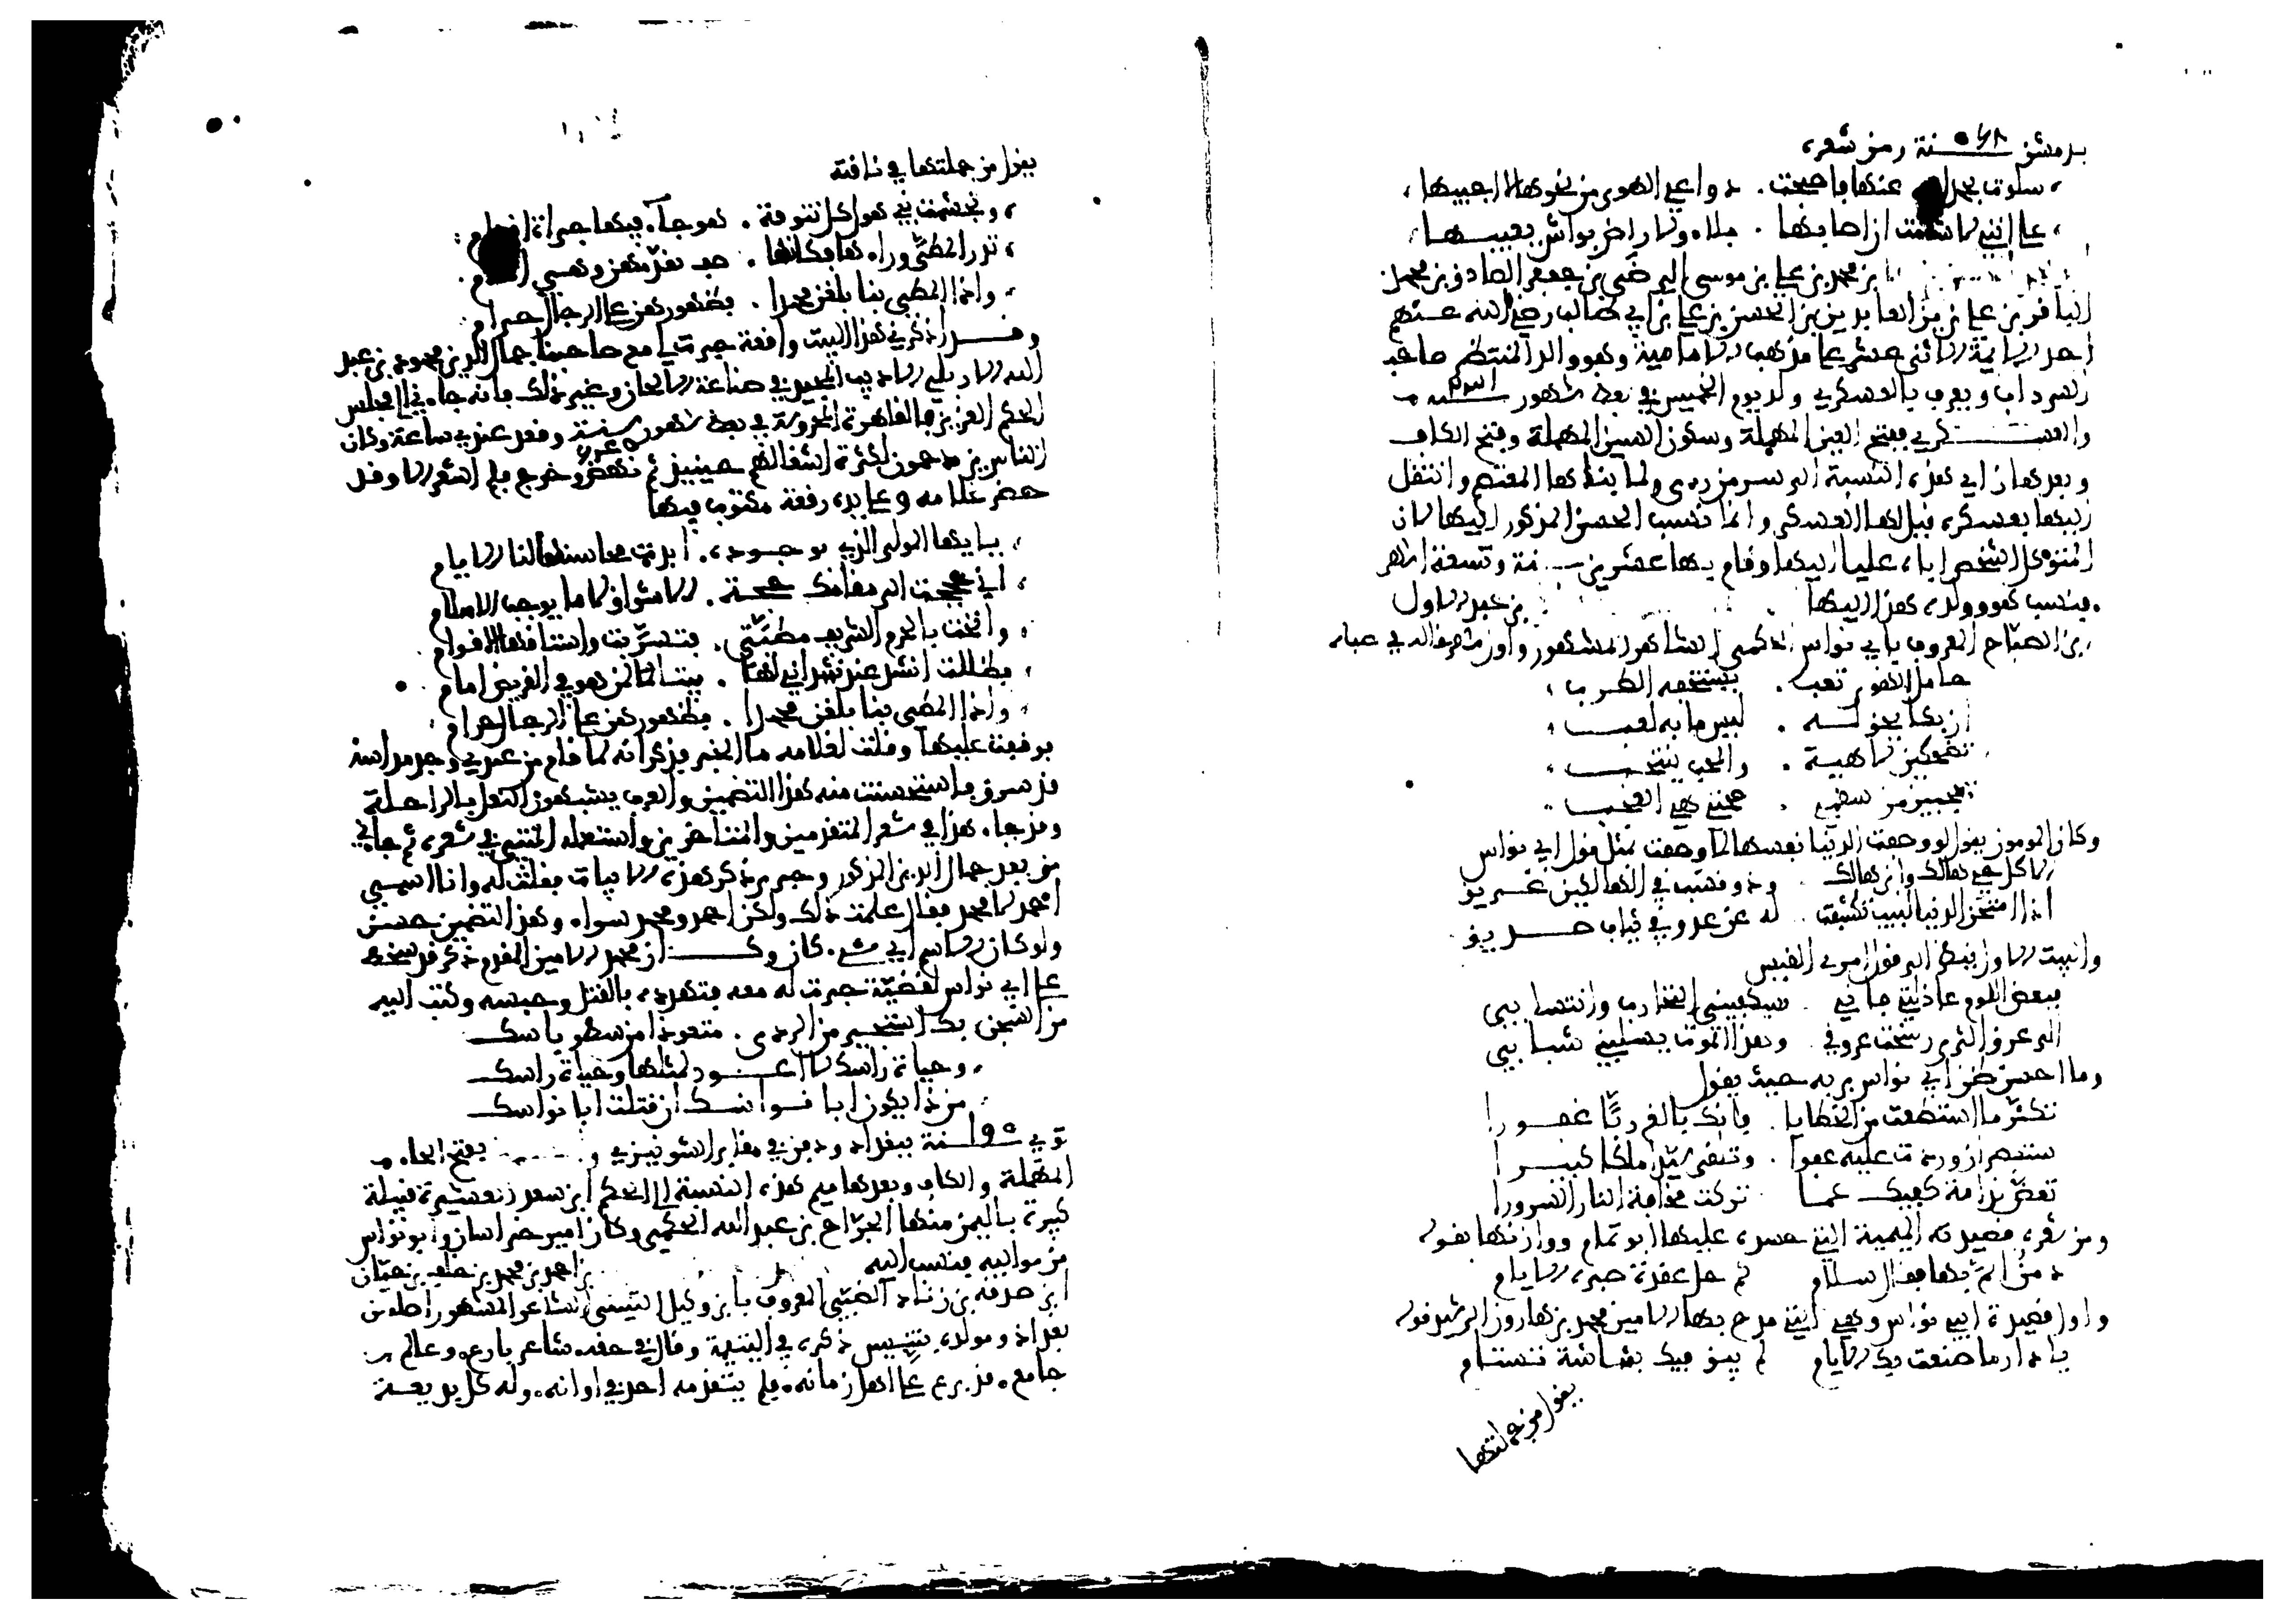 بدمشق سنة ٥٦٨ ومن شعره
سلوت بحمد عنها فاصبحت دواعي الهوى من نحوها لا اجيبها
على انني لا شامت ان اصابها بلاء ولا راض بواش يعيبها
بن محمد بن علي بن موسى الرضى بن جعفر الصادق بن محمد
الباقر بن علي زين العابدين بن الحسين بن علي بن ابي طالب رضي الله عنهم
احد الايمة الاثني عشر على مذهب الامامية وهو والد المنتظر صاحب
السرداب ويعرف بالعسكري ولد يوم الخميس في بعض شهور سنة
والعسكري بفتح العين المهملة وسكون السين المهملة وفتح الكاف
وبعدها راء هذه النسبة الى سر من رءى ولما بناها المعتصم وانتقل
اليها بعسكره قيل لها العسكر وانما نسب الحسن المذكور اليها لان
المتوكل اشخص اباه عليا اليها وقام بها عشرين سنة وتسعة اشهر
فنسب هو وولده هذا اليها بن عبد الاول
بن الصباح المعروف بابي نواس الحكمي الشاعر المشهور
حامل الهوى تعب يستخفه الطرب
ان بكا يحق له ليس ما به لعب
تضحكين لاهية والمحب ينتحب
تعجبين من سقمي صحتي هي العجب
وكان المومون يقول لو وصفت الدنيا نفسها لما وصفت بمثل قول ابي نواس
الا كل حي هالك وابن هالك وذو نسب في الهالكين عريق
اذا امتحن الدنيا لبيب تكشفت له عن عدو في ثياب صديق
والبيت الاول ينظر الى قول امرئ القيس
فبعض اللوم عاذلتي فاني سيكفيني التجارب وانتسابي
الى عرق الثرى رسخت عروقي وهذا الموت يسلبني شبابي
وما احسن ظن ابي نواس بربه حيث يقول
تكثر ما استطعت من الخطايا فانك بالغ ربا غفورا
ستبصر ان وردت عليه عفوا وتلقى سيدا ملكا كبيرا
تعض ندامة كفيك مما تركت مخافة النار السرورا
ومن شعره قصيدته الميمية التي حسده عليها ابو تمام ووازنها بقوله
دمن الم بها فقال سلام كم حل عقدة صبره الايام
واول قصيدة ابي نواس وهي التي مدح بها الامين محمد بن هارون الرشيد قوله
يا دار ما صنعت بك الايام لم يبق فيك بشاشة تستام
يقول من جملتها
يقول من جملتها في ناقته
وتجشمت بي هول كل تنوفة هوجاء فيها جراة اقدام
تذر المطي وراءها فكانها صف تقدمهن وهي امام
واذا المطي بنا بلغن محمدا فظهورهن على الرجال حرام
وقد اذكرني هذا البيت واقعة جرت لي مع صاحبنا جمال الدين محمود بن عبد
الله الاربلي الاديب المجيد في صناعة الالحان وغير ذلك فانه جاءني الى مجلس
الحكم العزيز بالقاهرة المحروسة في بعض شهور سنة وقعد عندي ساعة وكان
الناس يزدحمون لكثرة اشغالهم حينيذ ثم نهض وخرج فلم اشعر الا وقد
حضر غلامه وعلى يده رقعة مكتوب فيها
يا ايها المولى الذي بوجوده ابدت محاسنها لنا الايام
اني حججت الى مقامك حجة الاشواق لا ما يوجب الاسلام
وانخت بالحرم الشريف مطيتي فتسربت واستاقها الاقوام
فظللت انشد عند نشداني لها بيتا لمن هو في القريض امام
واذا المطي بنا بلغن محمدا فظهورهن على الرجال حرام
فوقفت عليها وقلت لغلامه ما الخبر فذكر انه لما قام من عندي وجد مداسه
قد سرق فاستحسنت منه هذا التضمين والعرب يشبهون النعل بالراحلة
وقد جاء هذا في شعر المتقدمين والمتاخرين واستعمله المتنبي في شعره ثم جاءني
من بعد جمال الدين المذكور وجرى ذكر هذه الابيات فقلت له وانا اسمي
احمد لا محمد فقال علمت ذلك ولكن احمد ومحمد سواء وهذا التضمين حسن
ولو كان الاسم اي شيء كان وكان محمد الامين المقدم ذكره قد سخط
على ابي نواس لقضية جرت له معه فتهدده بالقتل وحبسه وكتب اليه
من السجن بك استجير من الردى متعوذا من سطو باسك
وحياة راسك لا اعود لمثلها وحياة راسك
من ذا يكون ابا نواسك ان قتلت ابا نواسك
توفي سنة ببغداد ودفن في مقابر الشونيزي بفتح الحاء
المهملة والكاف وبعدها ميم هذه النسبة الى الحكم ابن سعد العشيرة قبيلة
كبيرة باليمن منها الجراح بن عبد الله الحكمي وكان امير خراسان وابو نواس
من مواليه فنسب اليه بن احمد بن محمد بن خلف بن حيان
ابن صدقة بن زياد الضبي المعروف بابن وكيل التنيسي الشاعر المشهور اصله من
بغداد ومولده بتنيس ذكره في اليتيمة وقال في حقه شاعر بارع وعالم
جامع قد برع على اهل زمانه فلم يتقدمه احد في اوانه وله كل بديعة